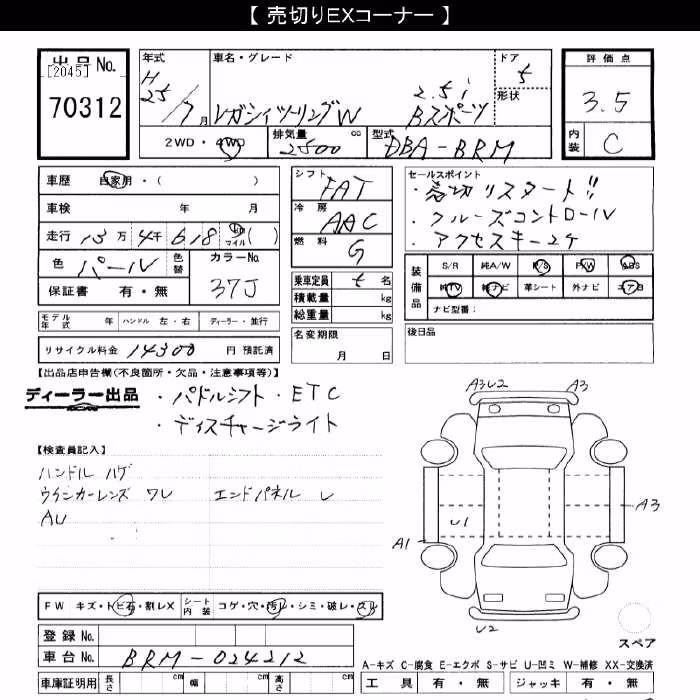 【 売切りEXコーナー 】
出品 No.
[2045]
70312
年式
H
25/7月
車名・グレード
2.5i
レガシィツーリングW Bスポーツ
ドア
5
形状
2WD・4WD
排気量 2500 cc
型式 DBA-BRM
評価点
3.5
内装 C
車歴 自家用・( )
車検 年 月
走行 13万 4千 618 km マイル ( )
色 パール
色替
カラーNo.
37J
保証書 有・無
シフト
FAT
冷房
AAC
燃料
G
乗車定員 5 名
積載量 kg
総重量 kg
名変期限
月 日
セールスポイント
・売切りスタート!!
・クルーズコントロール
・アクセスキー2ケ
装備品
S/R 純A/W P/S P/W ABS
純TV 純ナビ 革シート 外ナビ エアB
ナビ型番:
後日品
モデル年式 年 ハンドル 左・右 ディーラー・並行
リサイクル料金 14300 円 預託済
【出品店申告欄(不良箇所・欠品・注意事項等)】
ディーラー出品
・パドルシフト・ETC
・ディスチャージライト
【検査員記入】
ハンドル ハゲ
ウインカーレンズ ワレ エンドパネル レ
AU
A3U2
A3
U1
A1
A3
U2
スペア
FW キズ・トビ石・割レX
シート内装 コゲ・穴・汚レ・シミ・破レ・スレ
登録 No.
車台 No. BRM-024212
車庫証明用 長さ cm 幅 cm 高さ cm
A-キズ C-腐食 E-エクボ S-サビ U-凹ミ W-補修 XX-交換済
工具 有・無 ジャッキ 有・無